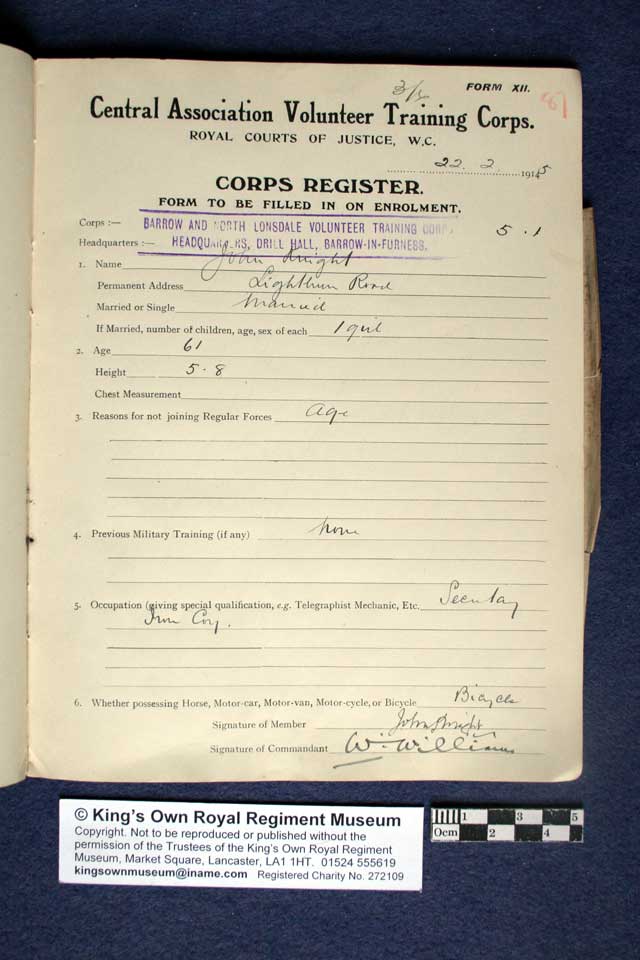 3/5
FORM XII.
87
Central Association Volunteer Training Corps.
ROYAL COURTS OF JUSTICE, W.C.
22. 2. 1915
CORPS REGISTER.
FORM TO BE FILLED IN ON ENROLMENT.
Corps :— BARROW AND NORTH LONSDALE VOLUNTEER TRAINING CORPS, 5 . 1
Headquarters :— HEADQUARTERS, DRILL HALL, BARROW-IN-FURNESS.
1. Name John Knight
Permanent Address Lightburn Road
Married or Single Married
If Married, number of children, age, sex of each 1 girl
2. Age 61
Height 5 . 8
Chest Measurement
3. Reasons for not joining Regular Forces Age
4. Previous Military Training (if any) None
5. Occupation (giving special qualification, e.g. Telegraphist Mechanic, Etc. Secretary
Iron Coy.
6. Whether possessing Horse, Motor-car, Motor-van, Motor-cycle, or Bicycle Bicycle
Signature of Member John Knight
Signature of Commandant W. Williams
© King's Own Royal Regiment Museum
Copyright. Not to be reproduced or published without the
permission of the Trustees of the King's Own Royal Regiment
Museum, Market Square, Lancaster, LA1 1HT. 01524 555619
kingsownmuseum@iname.com Registered Charity No. 272109
1 3 5
0cm 2 4